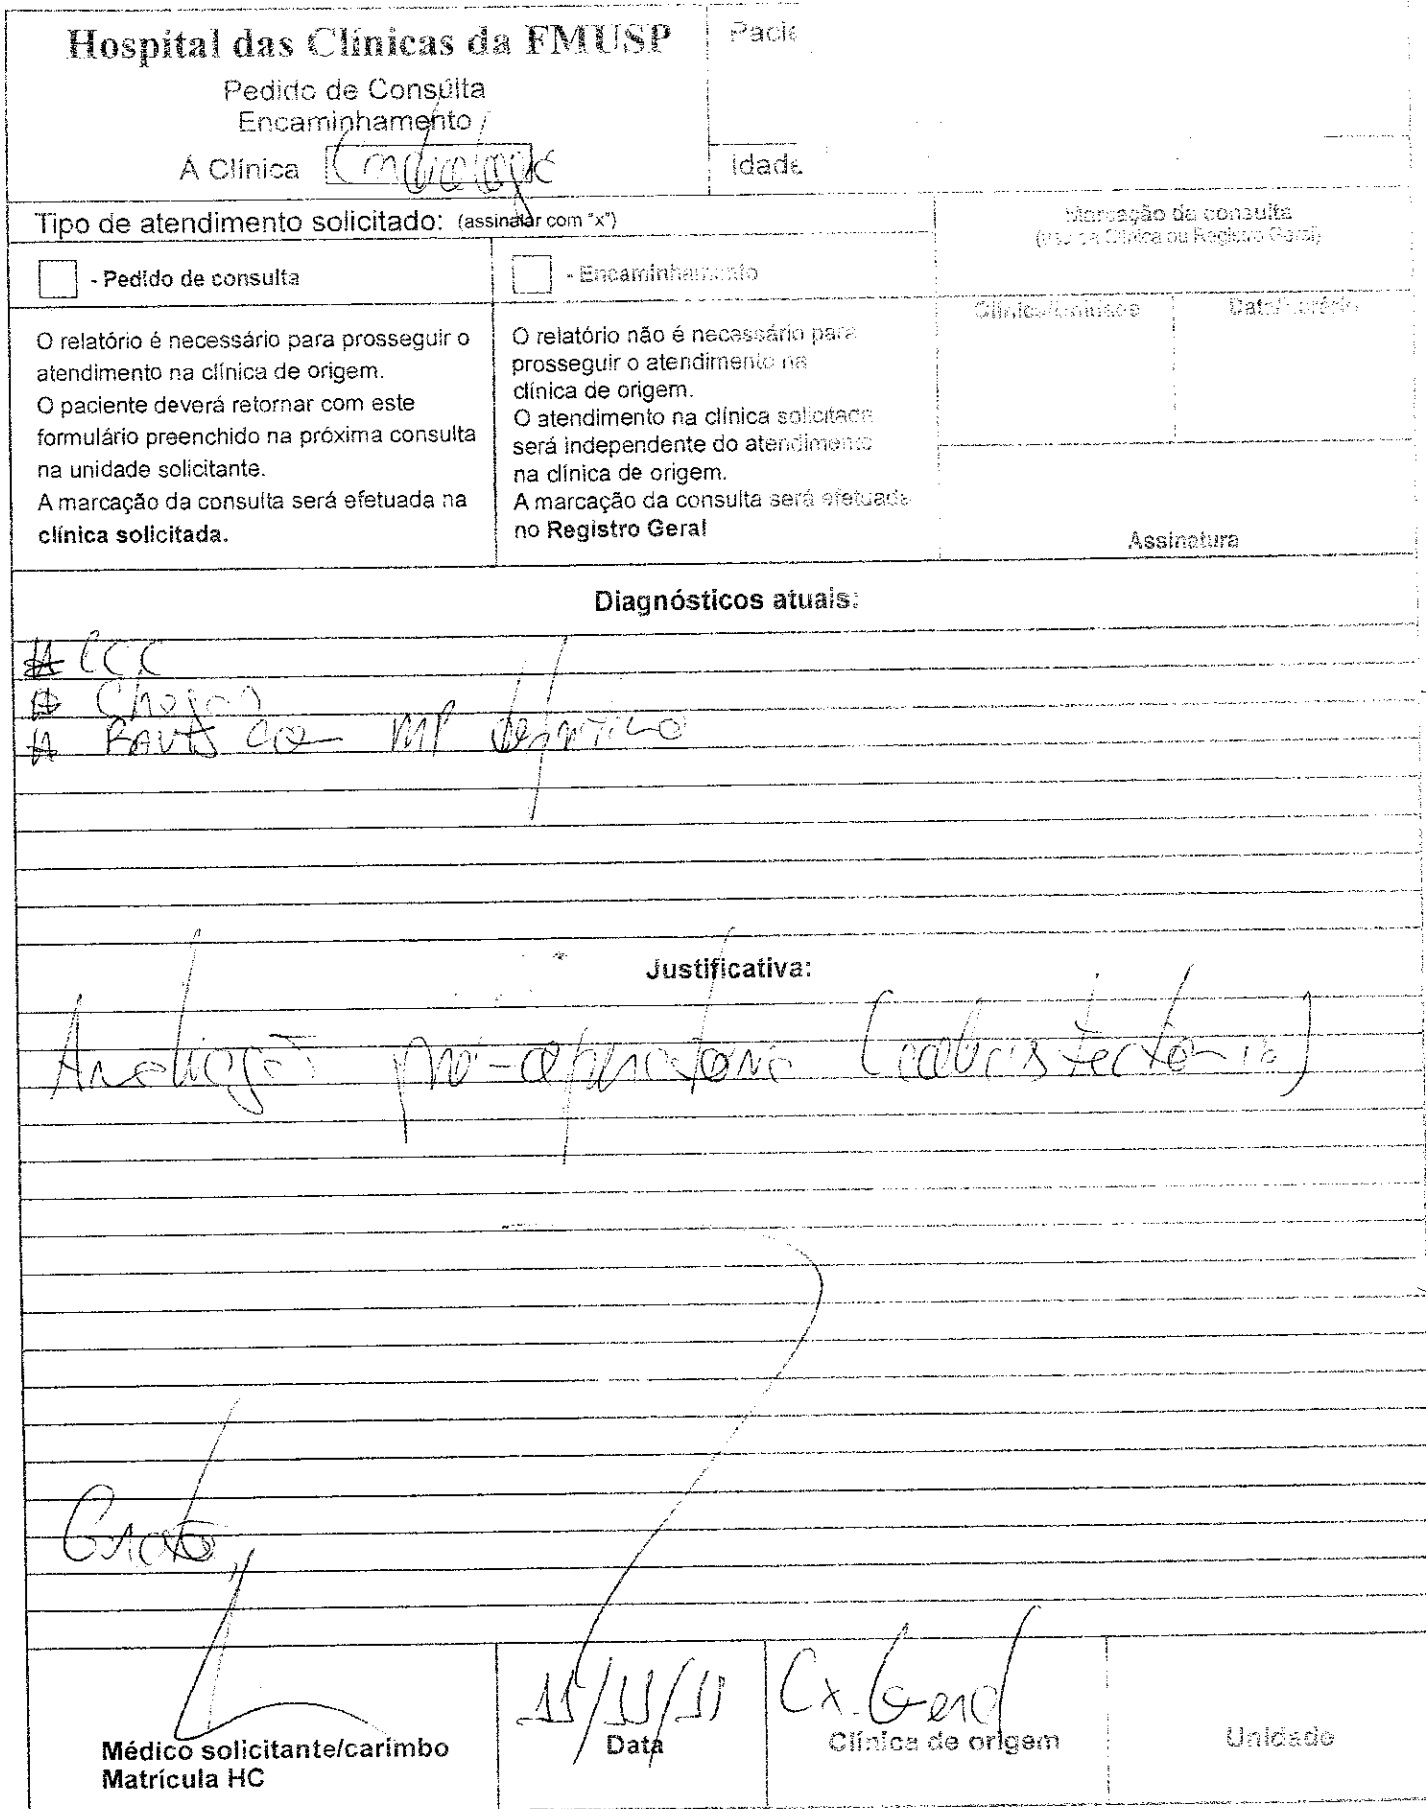 Hospital das Clínicas da FMUSP
Pedido de Consulta
Encaminhamento
Á Clínica Cardiologia
Idade
Tipo de atendimento solicitado: (assinalar com "x")
Marcação da consulta
(Uso da Clínica ou Registro Geral)
- Pedido de consulta
- Encaminhamento
Clínica/Unidade
Data/Horário
O relatório é necessário para prosseguir o
atendimento na clínica de origem.
O paciente deverá retornar com este
formulário preenchido na próxima consulta
na unidade solicitante.
A marcação da consulta será efetuada na
clínica solicitada.
O relatório não é necessário para
prosseguir o atendimento na
clínica de origem.
O atendimento na clínica solicitada
será independente do atendimento
na clínica de origem.
A marcação da consulta será efetuada
no Registro Geral
Assinatura
Diagnósticos atuais:
# CCC
# Chagas
# BAVT com MP definitivo
Justificativa:
Avaliação pré-operatória (colecistectomia)
Grato,
11/11/11
Cx. Geral
Médico solicitante/carimbo
Matrícula HC
Data
Clínica de origem
Unidade